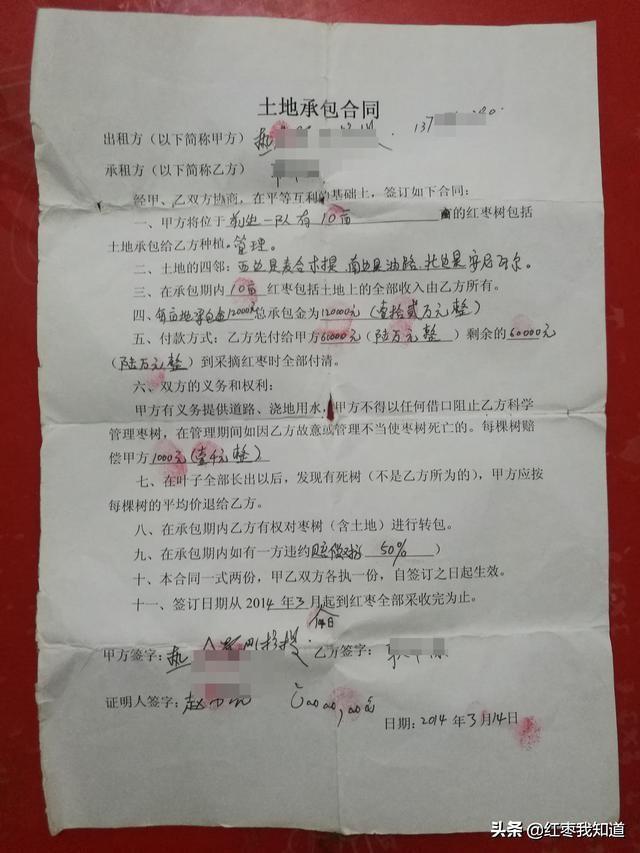 土地承包合同
出租方（以下简称甲方） 热 137
承租方（以下简称乙方）
经甲、乙双方协商，在平等互利的基础上，签订如下合同：
一、甲方将位于 一队有 10亩 亩的红枣树包括
土地承包给乙方种植。管理。
二、土地的四邻：西边是麦合木提，南边是油路，北边是
三、在承包期内 10亩 红枣包括土地上的全部收入由乙方所有。
四、每亩地承包金12000元 总承包金为120000元（壹拾贰万元整）
五、付款方式：乙方先付给甲方60000元（陆万元整）剩余的60000元
（陆万元整）到采摘红枣时全部付清。
六、双方的义务和权利：
甲方有义务提供道路、浇地用水，甲方不得以任何借口阻止乙方科学
管理枣树，在管理期间如因乙方故意或管理不当使枣树死亡的。每棵树赔
偿甲方1000元（壹仟元整）
七、在叶子全部长出以后，发现有死树（不是乙方所为的），甲方应按
每棵树的平均价退给乙方。
八、在承包期内乙方有权对枣树（含土地）进行转包。
九、在承包期内如有一方违约赔偿对方 50%）
十、本合同一式两份，甲乙双方各执一份，自签订之日起生效。
十一、签订日期从2014年3月起到红枣全部采收完为止。
甲方签字：热 乙方签字：
证明人签字：赵
日期：2014年3月14日
头条 @红枣我知道